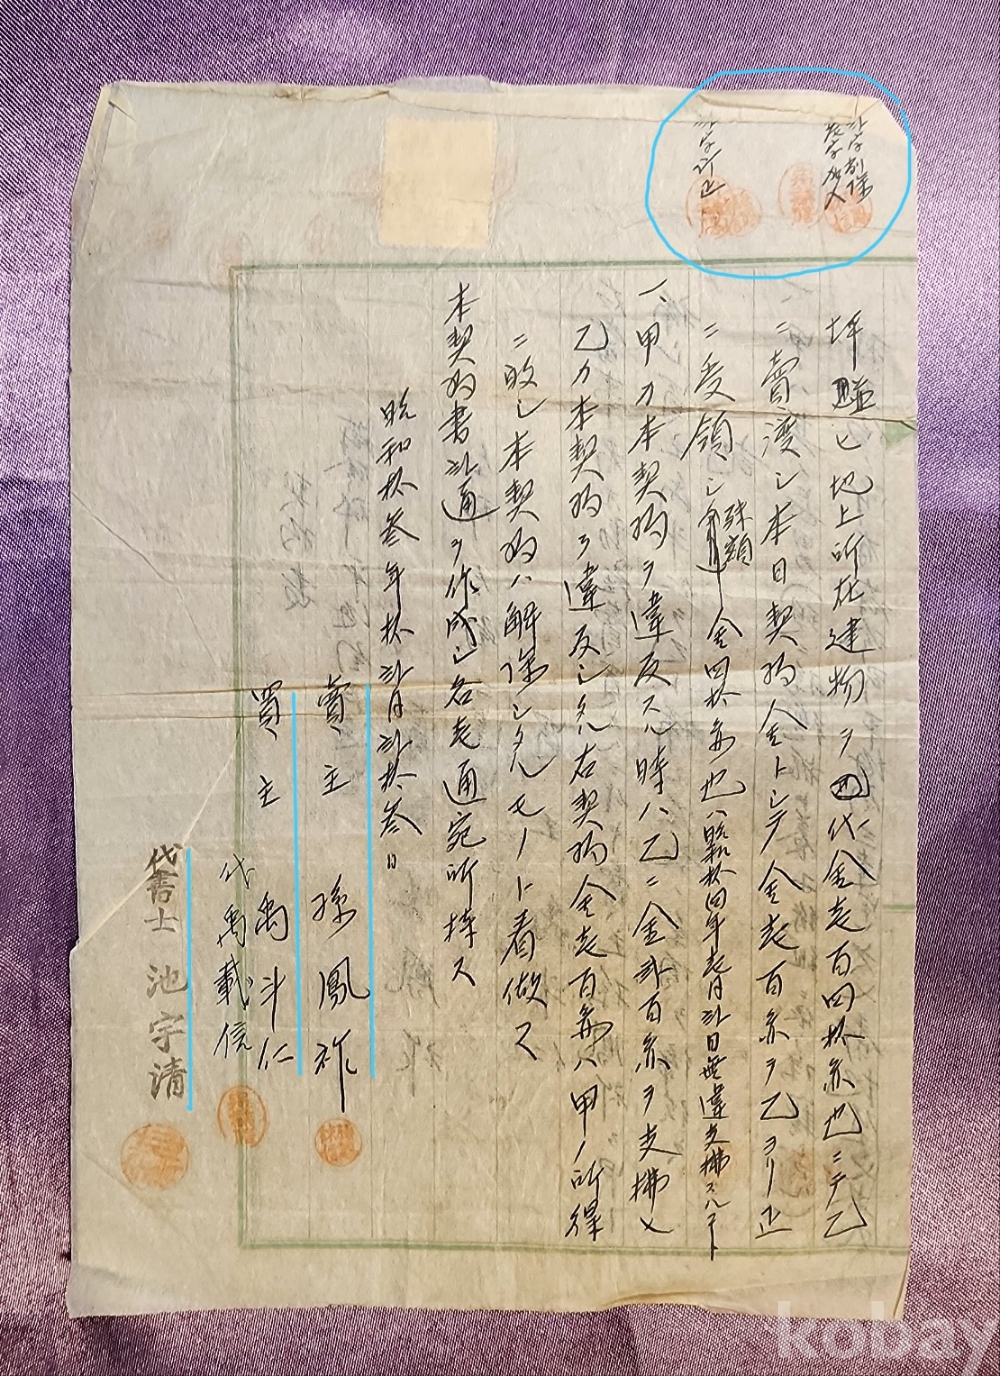 弐字削除
壱字加入
弐字訂正
坪 並ヒ地上所在建物ヲ 代金壱百四拾余也ニテ乙
ニ賣渡シ本日契約金トシテ金壱百余ヲ乙ヨリ正
ニ受領シ 残額 金四拾余也ハ昭和拾四年壱月弐日無違支拂スルコト
一、甲カ本契約ヲ違反スル時ハ乙ニ金弐百余ヲ支拂ヒ
乙カ本契約ヲ違反シタル右契約金壱百余ハ甲ノ所得
ニ敀シ本契約ハ解除シタルモノト看做ス
本契約書弐通ヲ作成シ各壱通宛所持ス
昭和拾参年拾弐月弐拾参日
賣主 孫鳳祚
買主 禹斗仁
代禹載信
代書士 池宇清
kobay